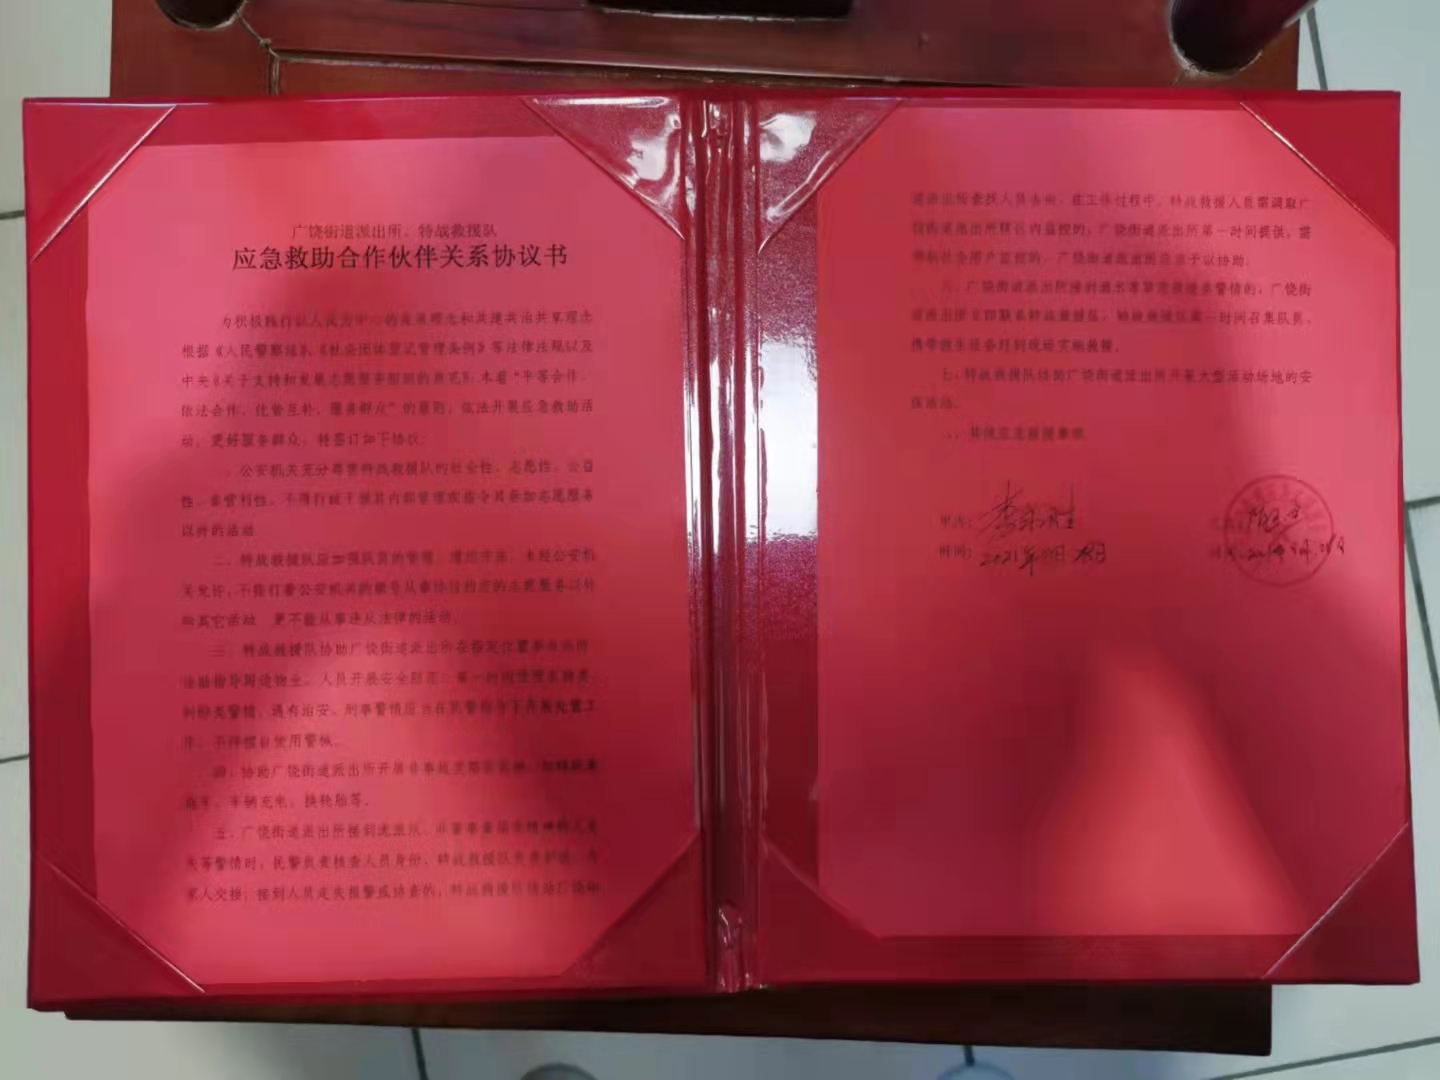 广饶街道派出所、特战救援队
应急救助合作伙伴关系协议书
为积极践行以人民为中心的发展理念和共建共治共享理念
根据《人民警察法》、《社会团体登记管理条例》等法律法规以及
中央《关于支持和发展志愿服务组织的意见》，本着“平等合作、
依法合作、优势互补、服务群众”的原则，依法开展应急救助活
动，更好服务群众，特签订如下协议：
公安机关充分尊重特战救援队的社会性、志愿性、公益
性、非营利性，不得行政干预其内部管理或指令其参加志愿服务
以外的活动
二、特战救援队应加强队员的管理，未经公安机
关允许，不能打着公安机关的旗号从事协议约定的志愿服务以外
的其它活动 更不能从事违反法律的活动。
三、特战救援队协助广饶街道派出所在指定位置
指导周边物业、人员开展安全防范，第一时间
纠纷类警情，遇有治安、刑事警情应当在民警指导下开展处置工
作，不得擅自使用警械。
四、协助广饶街道派出所开展
车辆充电、换轮胎等。
五、广饶街道派出所接到流浪人、精神病人走
失等警情时，民警负责核查人员身份，特战救援队负责
家人交接；接到人员走失报警或协查的，特战救援队协助广饶街
道派出所查找人员去向。在工作过程中，特战救援人员需调取广
饶街道派出所辖区内监控的，广饶街道派出所第一时间提供，需
调取社会用户监控的，广饶街道派出所应当予以协助。
广饶街道派出所接到溺水等紧急救援类警情的，广饶街
道派出所立即联系特战救援队，特战救援队第一时间召集队员，
携带救生设备赶到现场实施救援。
七、特战救援队协助广饶街道派出所开展大型活动场地的安
保活动。
八、其他应急救援事项
甲方：
时间：2021年